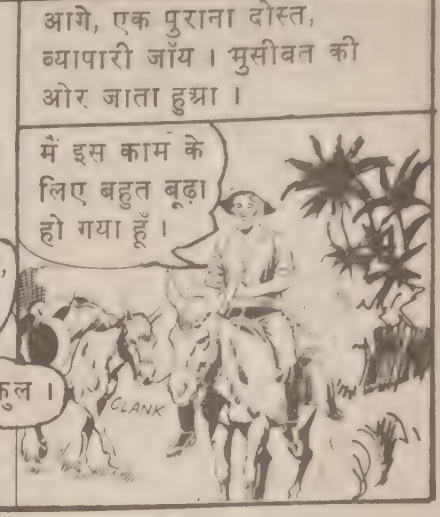 आगे, एक पुराना दोस्त,
व्यापारी जॉय । मुसीबत की
ओर जाता हुआ ।
मैं इस काम के
लिए बहुत बूढ़ा
हो गया हूँ ।
CLANK